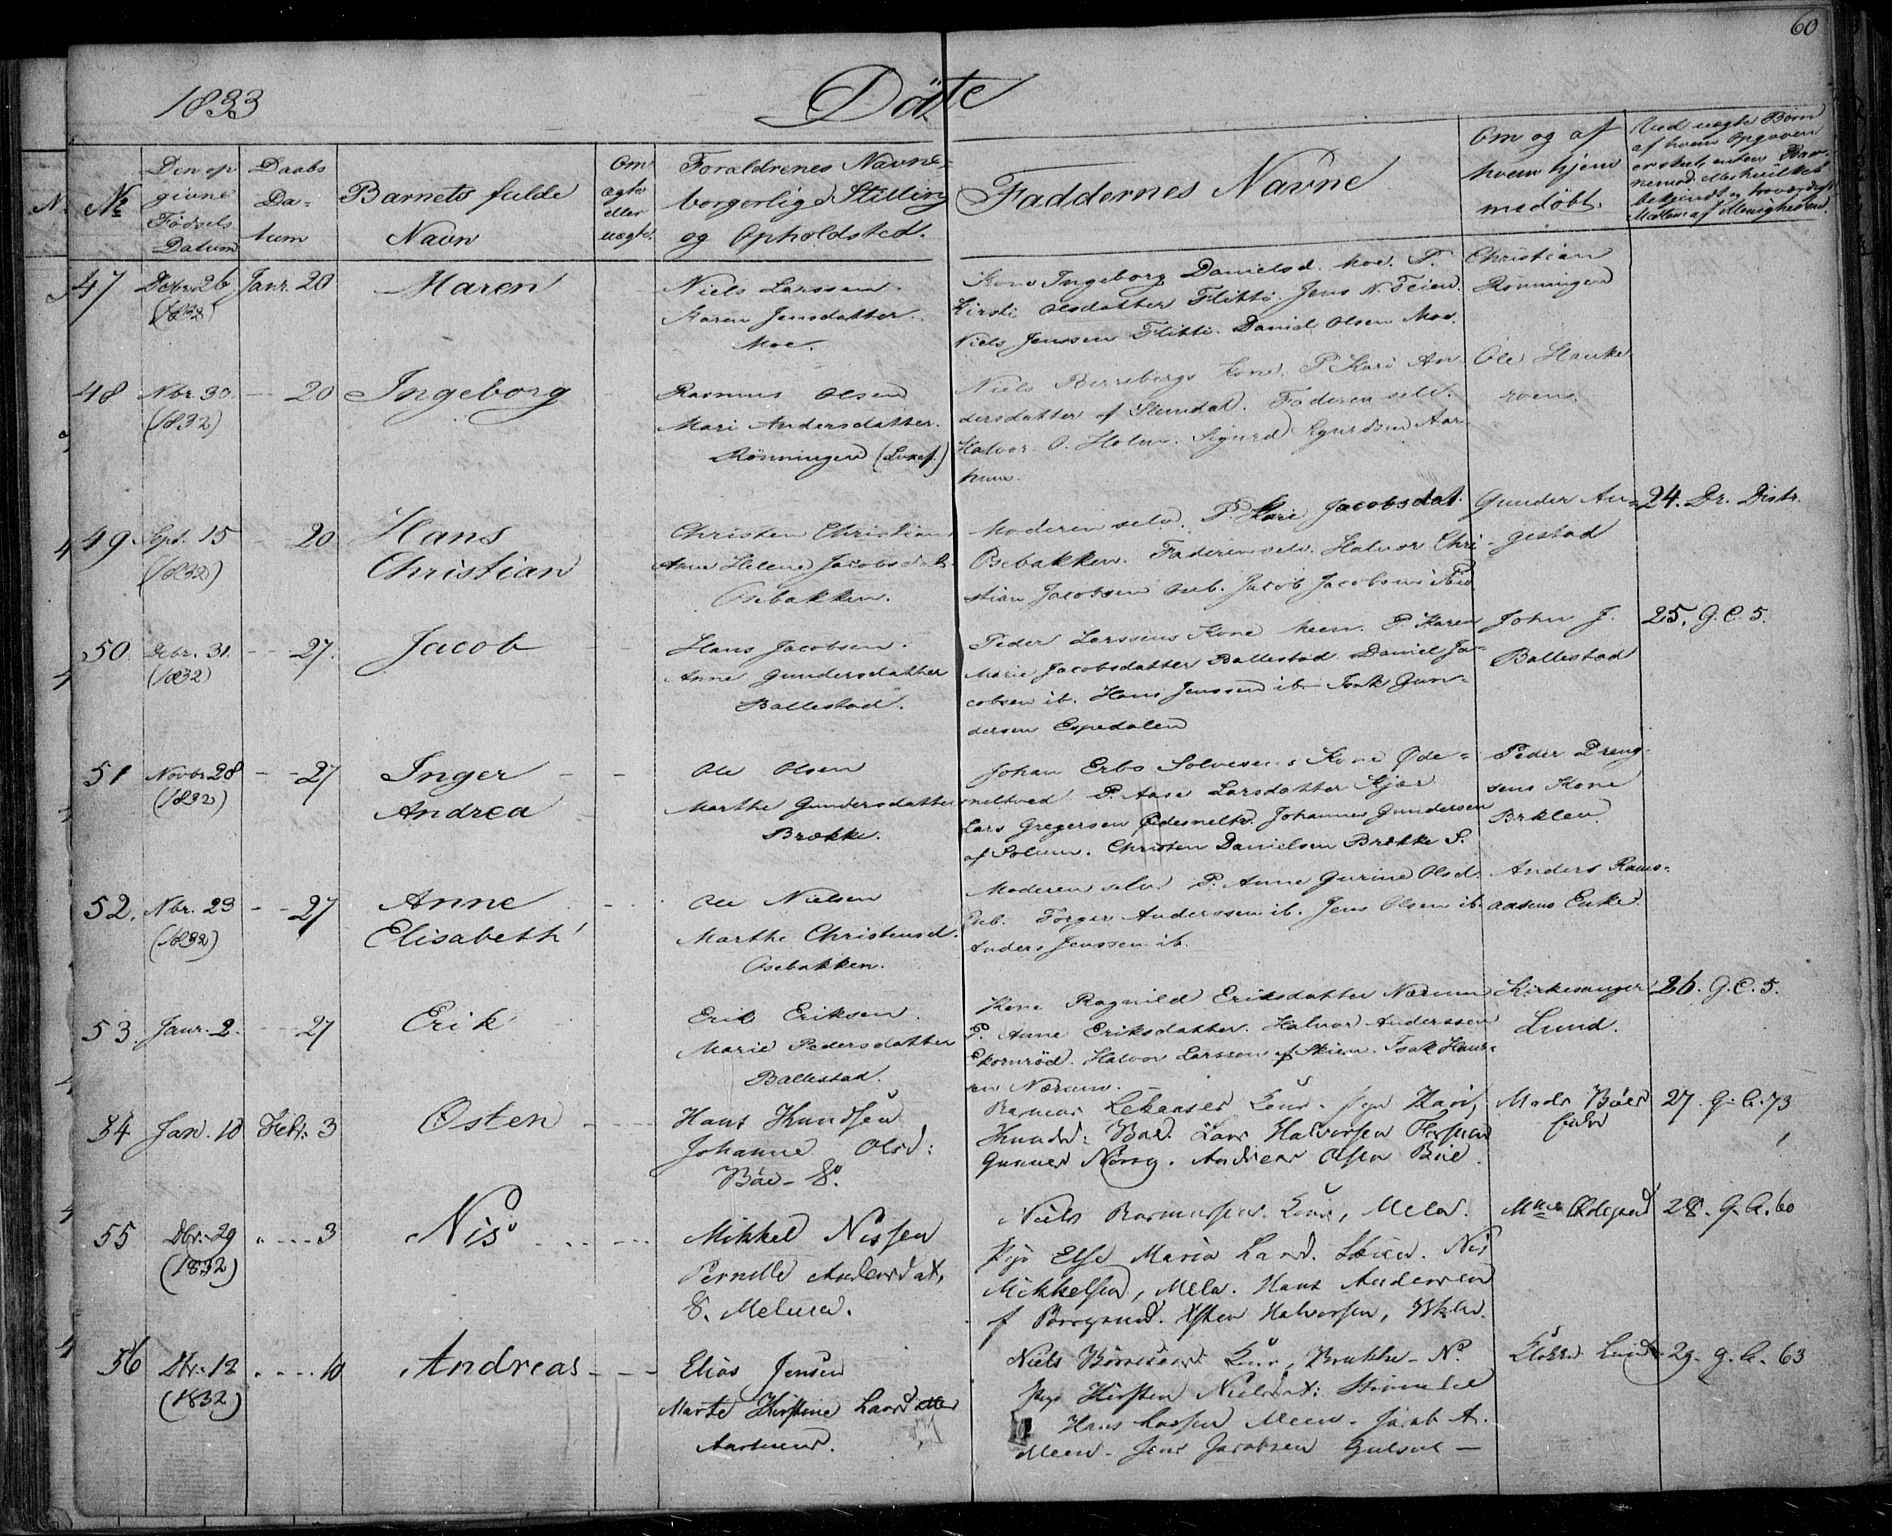 60
1833
Döbte
№
Den op
givne
Fødsels
Datum
Daabs
Da-
tum
Barnets fulde
Navn
Om
ægte
eller
uægte.
Forældrenes Navne
borgerlige Stilling
og Opholdsted.
Faddernes Navne
Om og af
hvem hjem
medøbt.
Ved uægte Børn
af hvem Opgaven
47
Decbr. 26
(1832)
Janr. 20
Maren
Niels Larssen.
Karen Jensdatter.
Moe.
Kone Ingeborg Danielsd. Moe. P.
Kirsti Olsdatter Flitti. Jens N. Feien.
Niels Jenssen Flitti. Daniel Olsen Moe.
Christian
Rønningen
48
Nbr. 30.
(1832)
20
Ingeborg
Rasmus Olsen
Mari Andersdatter.
Rønningen
Niels Berrebergs Kone. P. Kari An-
dersdatter af Slemdal. Faderen selv.
Halvor O. Holm. Sigurd Sigurdsen Aar-
huus.
Ole Hauke
roens.
49
Sept. 15
(1832)
20
Hans
Christian
Christen Christians
Anne Helene Jacobsdat.
Osebakken.
Moderen selv. P. Kari Jacobsdat.
Osebakken. Faderen selv. Halvor Chri-
stian Jacobsen Oseb. Jacob Jacobsens
Gunder An-
gestad
24. Dr. Distr.
50.
Debr. 31.
(1832)
27.
Jacob
Hans Jacobsen.
Anne Gundersdatter
Ballestad.
Peder Larssens Kone Meen. P. Karen
Marie Jacobsdatter Ballestad. Daniel Ja-
cobsen ib. Hans Jenssen ib. Isak Gun-
dersen Espedalen
John J.
Ballestad
25. G. C. 5.
51
Novbr. 28
(1832)
27
Inger
Andrea
Ole Olsen
Marthe Gundersdatter
Brække.
Johan Erbs Solvesens Kone Øde-
meltved P. Aase Larsdatter Kjær
Lars Gregersen Ødesmeltv. Johannes Gundersen
af Solum. Christen Danielsen Brække S.
Peder Dreng-
sens Kone
Brklev.
52.
Nbr. 23
(1832)
27
Anne
Elisabeth
Ole Nielsen
Marthe Christensd.
Osebakken.
Moderen selv P. Anne Gurine Olsd.
Oseb. Torger Anderssen ib. Jens Olsen ib.
Anders Jenssen ib.
Anders Rams-
aasens Enke.
53.
Janr. 2.
27
Erik
Erik Eriksen.
Marie Pedersdatter
Ballestad.
Kone Ragnild Eriksdatter Nærum
P. Anne Eriksdatter. Halvor Anderssen
Ekornrød. Halvor Larssen af Skien. Isak Hans-
en Nærum.
Kirkesanger
Lund.
26. G. C. 5.
54
Jan. 10
Febr. 3
Østen
Hans Knudsen
Johanne Olsd:
Böe- E.
Kone. Pige Kari,
Knudsd: Böe. Lars Halvorsen
Gunner. Andreas Olsen Böe
Mads Böes
27. G. C. 73
55
Dbr. 29
(1832)
3
Nis
Mikkel Nissen
Pernille Andersdat.
E. Melum.
Niels Rasmussens Kone, Melu.
Pige Else Maria Larsd. Skien. Nis
Mikkelsen, Melu. Hans Andersen
f Porsgrund. Østen Halvorsen,
Mdm Ødegaard
28. G. C. 60
56
Dbr. 12
(1832)
10
Andreas
Elias Jensen
Marte Kirstine Larsdatter
Aarhuus.
Niels Börresens Kone, Brække- N.
Pige Kirsten Nielsdat:
Hans Larsen Meen. Jacob A.
Meen. Jens Jacobsen Gulset
Klokk. Lund
29. G. C. 63